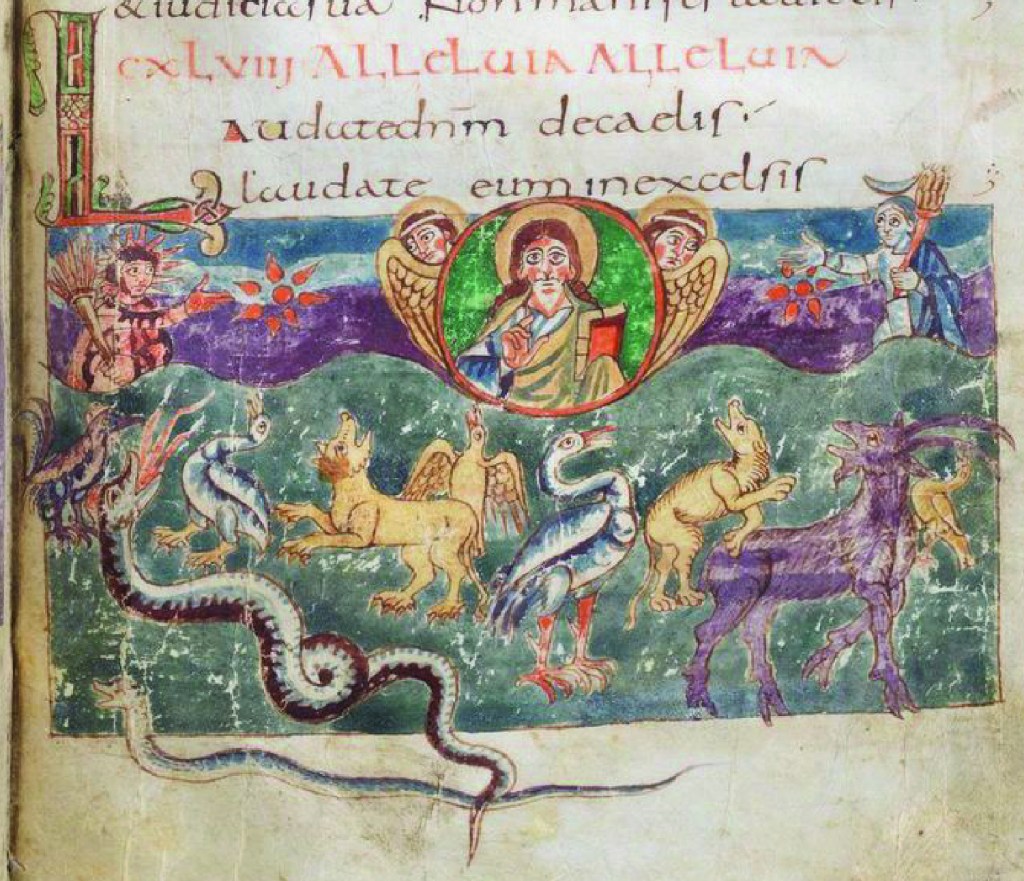 & iudicia sua Non
CXLVIIJ ALLELUIA ALLELUIA
LAudate dn̄m de caelis.
laudate eum in excelsis